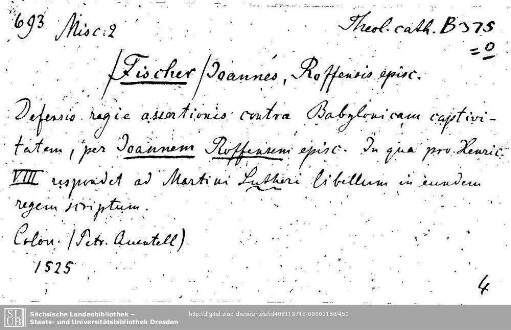 693 Misc. 2 Theol. cath. B 375
= 0
/Fischer/ Joannes, Roffensis episc.
Defensio regie assertionis contra Babylonicam captivi-
tatem, per Joannem Roffensem episc. In qua pro Henric
VIII respondet ad Martini Lutheri libellum in eundem
regem scriptum.
Colon. (Petr. Quentell)
1525
4
Sächsische Landesbibliothek –
Staats- und Universitätsbibliothek Dresden